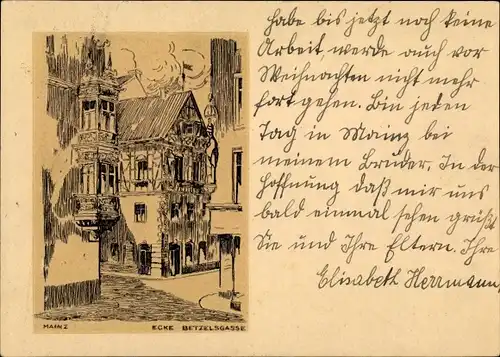 habe bis jetzt noch keine
Arbeit, werde auch vor
Weihnachten nicht mehr
fort gehen. Bin jeden
Tag in Mainz bei
meinem Bruder. In der
Hoffnung daß mir uns
bald einmal sehen grüßt
Sie und Ihre Eltern. Ihre
Elisabeth Herrmann,
MAINZ
ECKE BETZELSGASSE